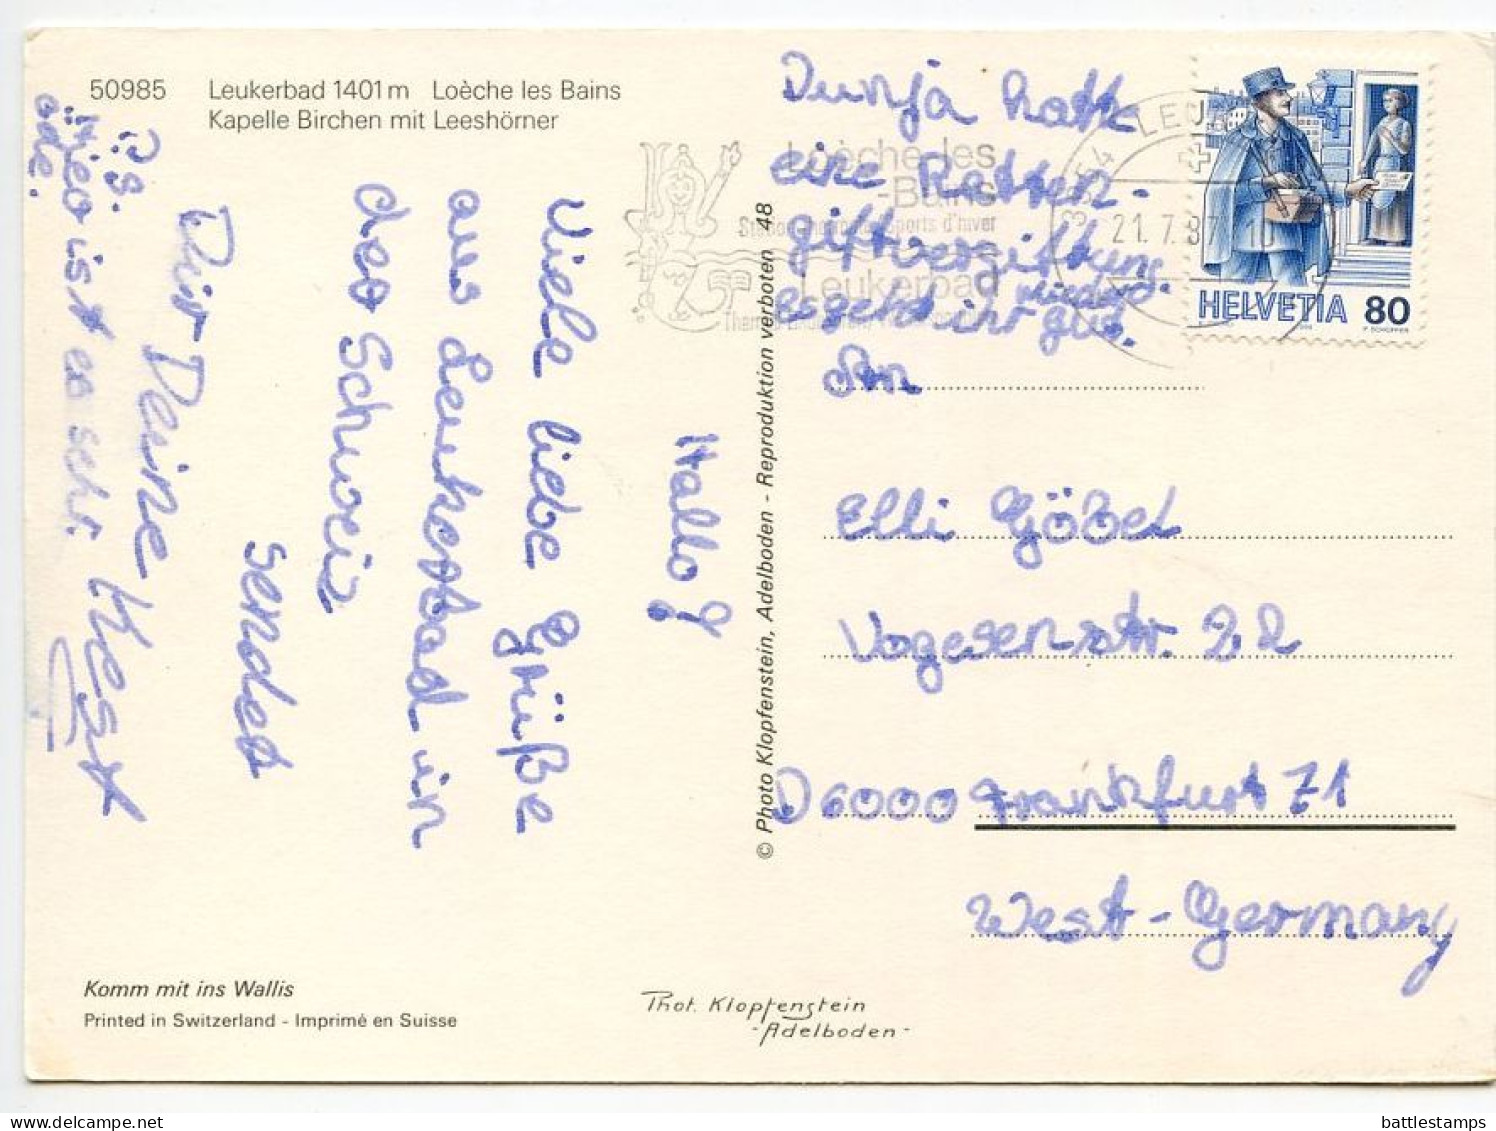 50985 Leukerbad 1401 m Loèche les Bains
Kapelle Birchen mit Leeshörner
Hallo!
Viele liebe Grüße
aus Leukerbad in
der Schweiz
sendet
Dir Deine
P.S.
Hier ist es sehr
öde.
Dunja hatte
eine Ratten-
giftvergiftung
es geht ihr wieder gut.
An
Elli Göbel
Vogesenstr. 22
D 6000 Frankfurt 71
West-Germany
Loèche-les
-Bains
Leukerbad
3954 LEU
21.7.87
HELVETIA 80
© Photo Klopfenstein, Adelboden - Reproduktion verboten 48
Komm mit ins Wallis
Printed in Switzerland - Imprimé en Suisse
Phot. Klopfenstein
-Adelboden-
battlestamps